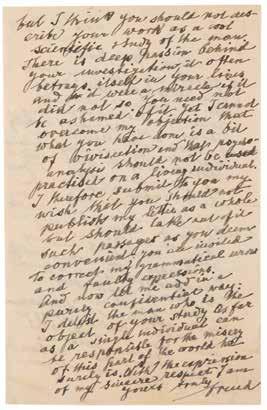 but I think you should not des-
cribe your work as a cool
scientific study of the man.
There is deep passion behind
your investigation, it often
betrays itself in your lines
and it were a miracle if it
did not so. You need not
be ashamed of it yet I cannot
overcome my objection that
what you have done is a bit
of vivisection and that psycho-
analysis should not be used
practised on a living individual.
I therefore submit to you my
wish that you should not
publish my letter as a whole
but should take out of it
such passages as you deem
convenient. you are invited
to correct my grammatical errors
and faulty expressions.
And now let me add in a
purely confidential way:
I detest the man who is the
object of your study. As far
as a single individual can
be responsible for the misery
of this part of the world he
surely is. With the expression
of my sincere respect I am
yours truly
Freud